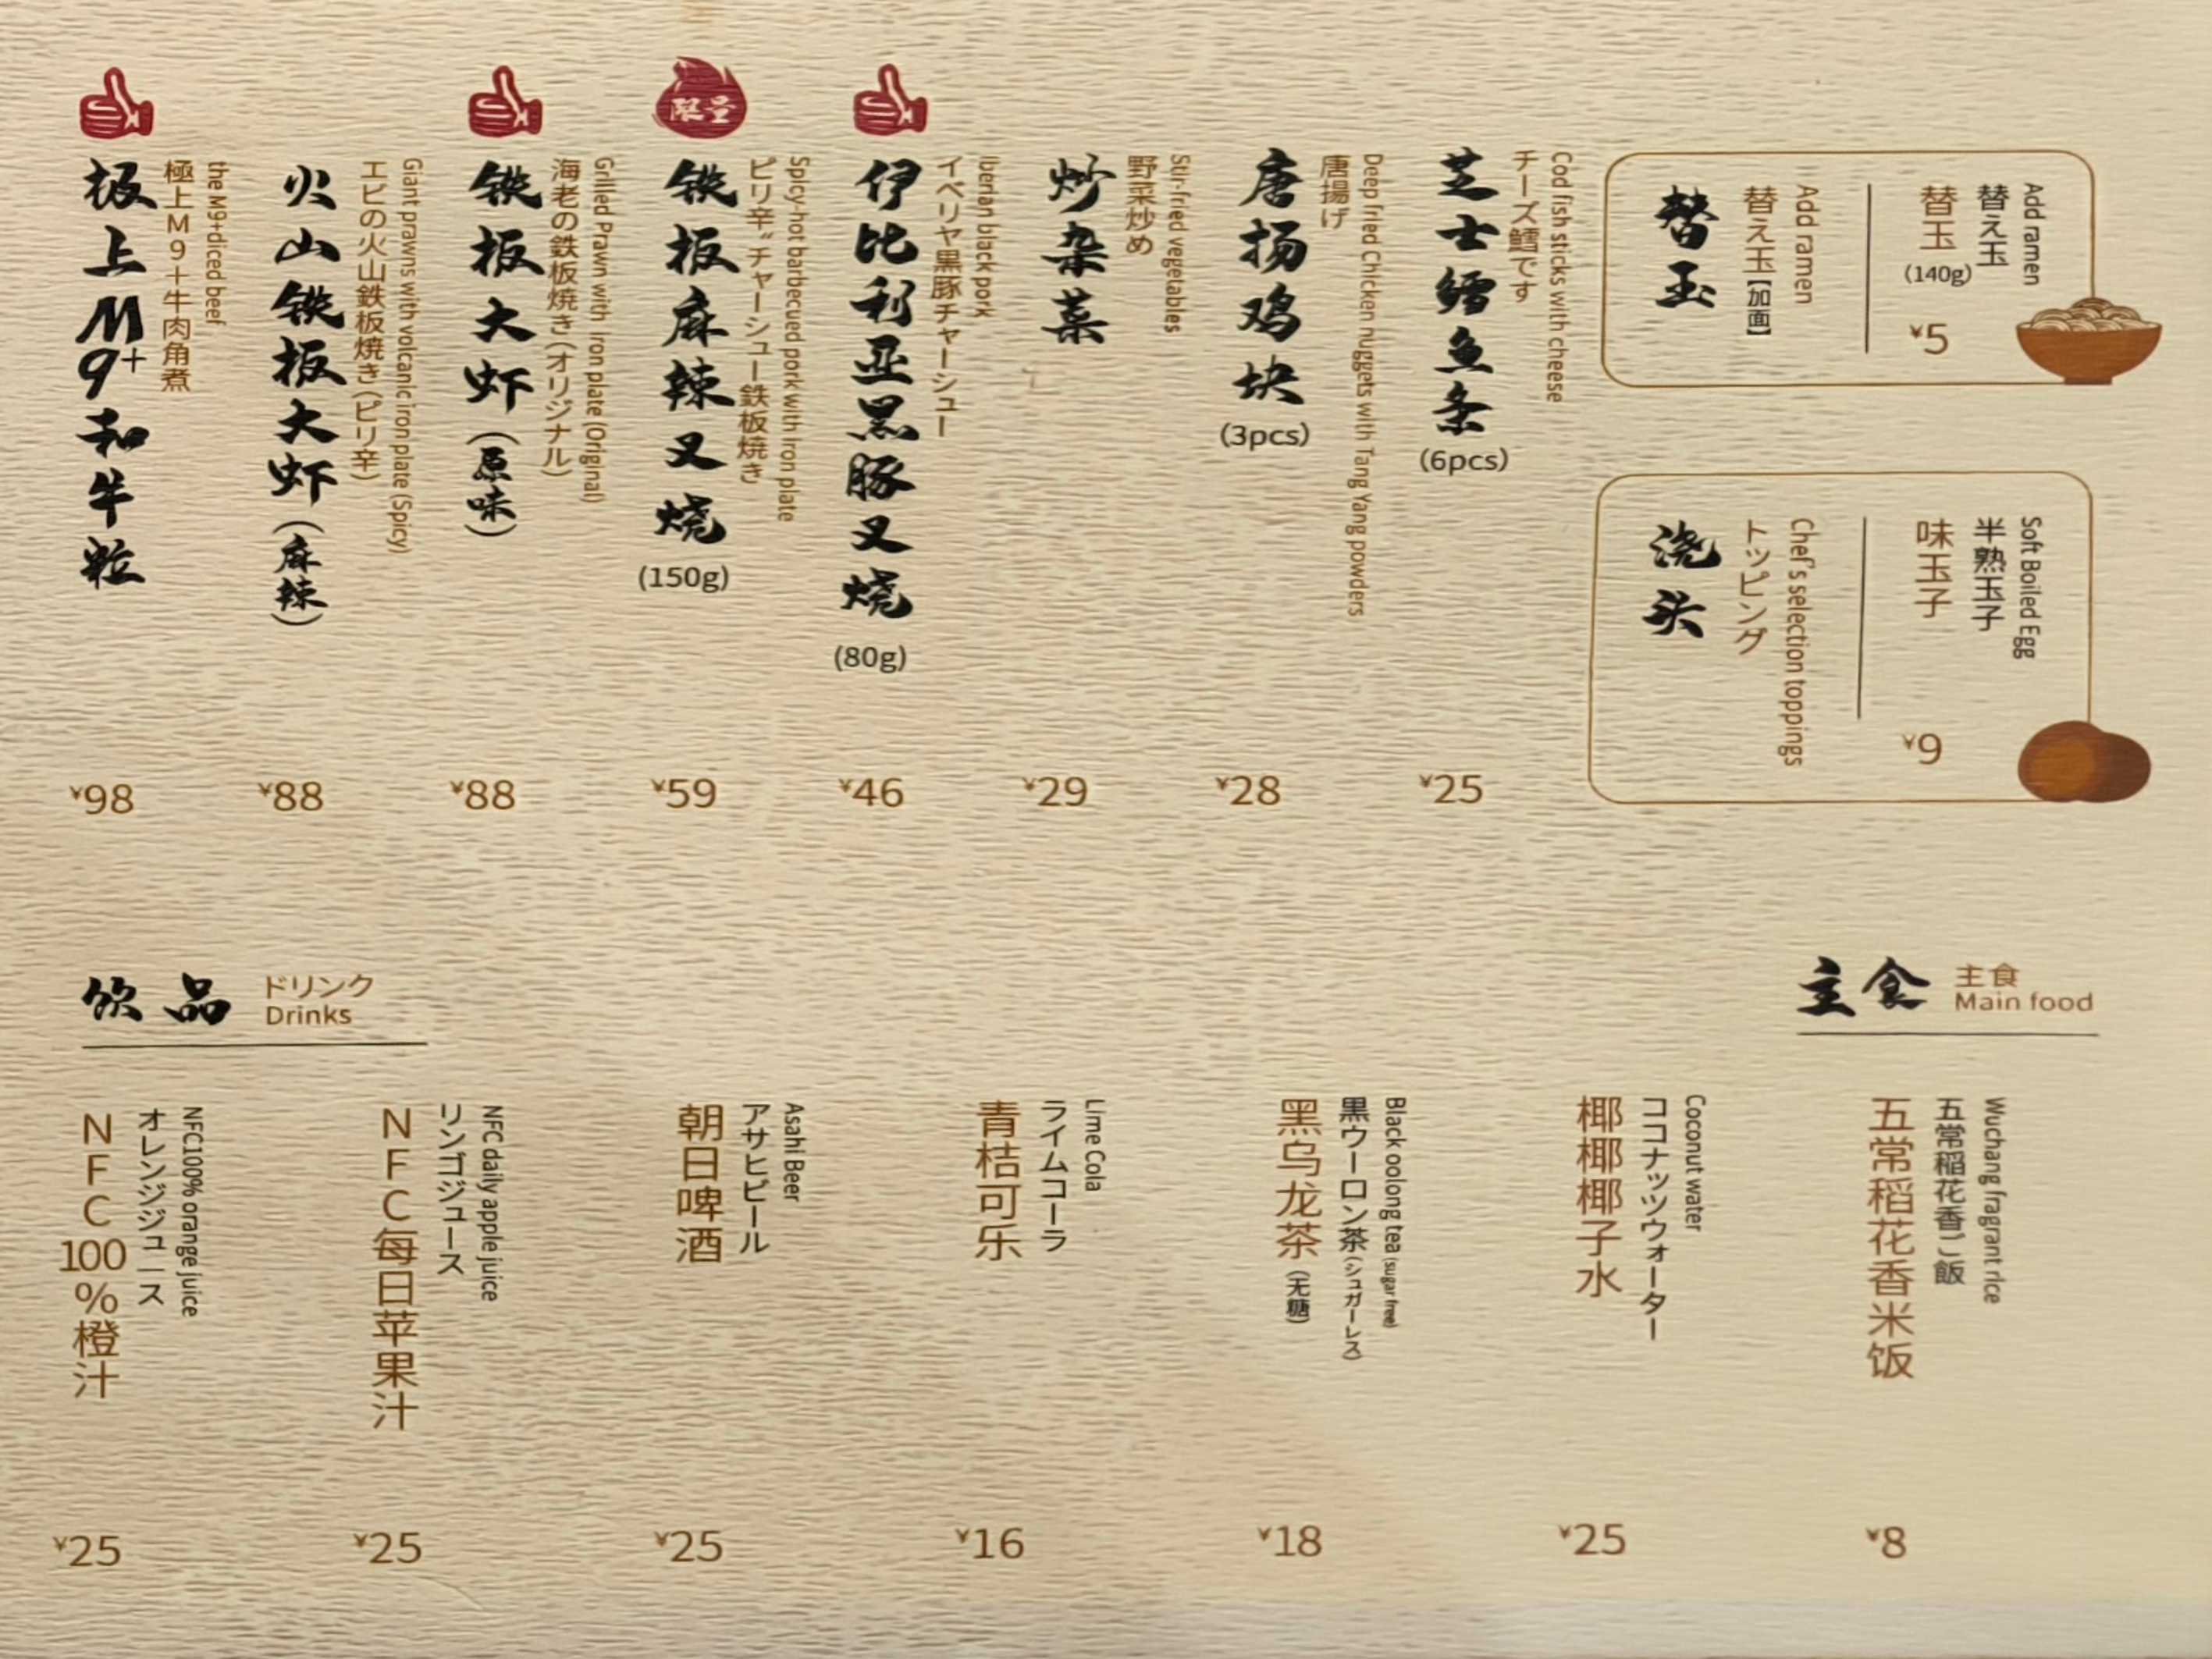 板上M9+和牛粒
極上M9+牛肉角煮
the M9+diced beef
¥98
火山铁板大虾(麻辣)
エビの火山鉄板焼き(ピリ辛)
Giant prawns with volcanic iron plate (Spicy)
¥88
铁板大虾(原味)
海老の鉄板焼き(オリジナル)
Grilled Prawn with iron plate (Original)
¥88
限量
铁板麻辣叉烧
(150g)
ピリ辛"チャーシュー鉄板焼き
Spicy-hot barbecued pork with iron plate
¥59
伊比利亚黑豚叉烧
(80g)
イベリヤ黒豚チャーシュー
Iberian black pork
¥46
炒杂菜
野菜炒め
Stir-fried vegetables
¥29
唐扬鸡块
(3pcs)
唐揚げ
Deep fried Chicken nuggets with Tang Yang powders
¥28
芝士鳕鱼条
(6pcs)
チーズ鱈です
Cod fish sticks with cheese
¥25
替玉
替え玉【加面】
Add ramen
替玉
(140g)
替え玉
Add ramen
¥5
浇头
トッピング
Chef's selection toppings
味玉子
半熟玉子
Soft Boiled Egg
¥9
饮品
ドリンク
Drinks
NFC100%橙汁
オレンジジュース
NFC100% orange juice
¥25
NFC每日苹果汁
リンゴジュース
NFC daily apple juice
¥25
朝日啤酒
アサヒビール
Asahi Beer
¥25
青桔可乐
ライムコーラ
Lime Cola
¥16
黑乌龙茶(无糖)
黒ウーロン茶(シュガーレス)
Black oolong tea (sugar free)
¥18
椰椰椰子水
ココナッツウォーター
Coconut water
¥25
主食
主食
Main food
五常稻花香米饭
五常稲花香ご飯
Wuchang fragrant rice
¥8